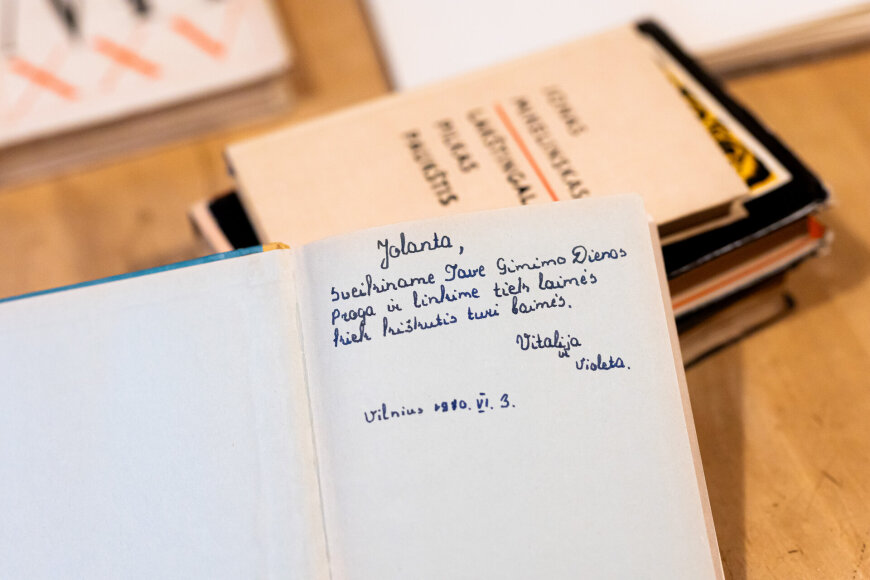 JONAS
MIKELINSKAS
LAKŠTINGAL
PILKAS
PAUKŠTIS
Jolanta,
sveikiname Tave Gimimo Dienos
proga ir linkime tiek laimės
kiek kiškutis turi baimės.
Vitalija
ir
Violeta.
Vilnius 1980. VI. 3.